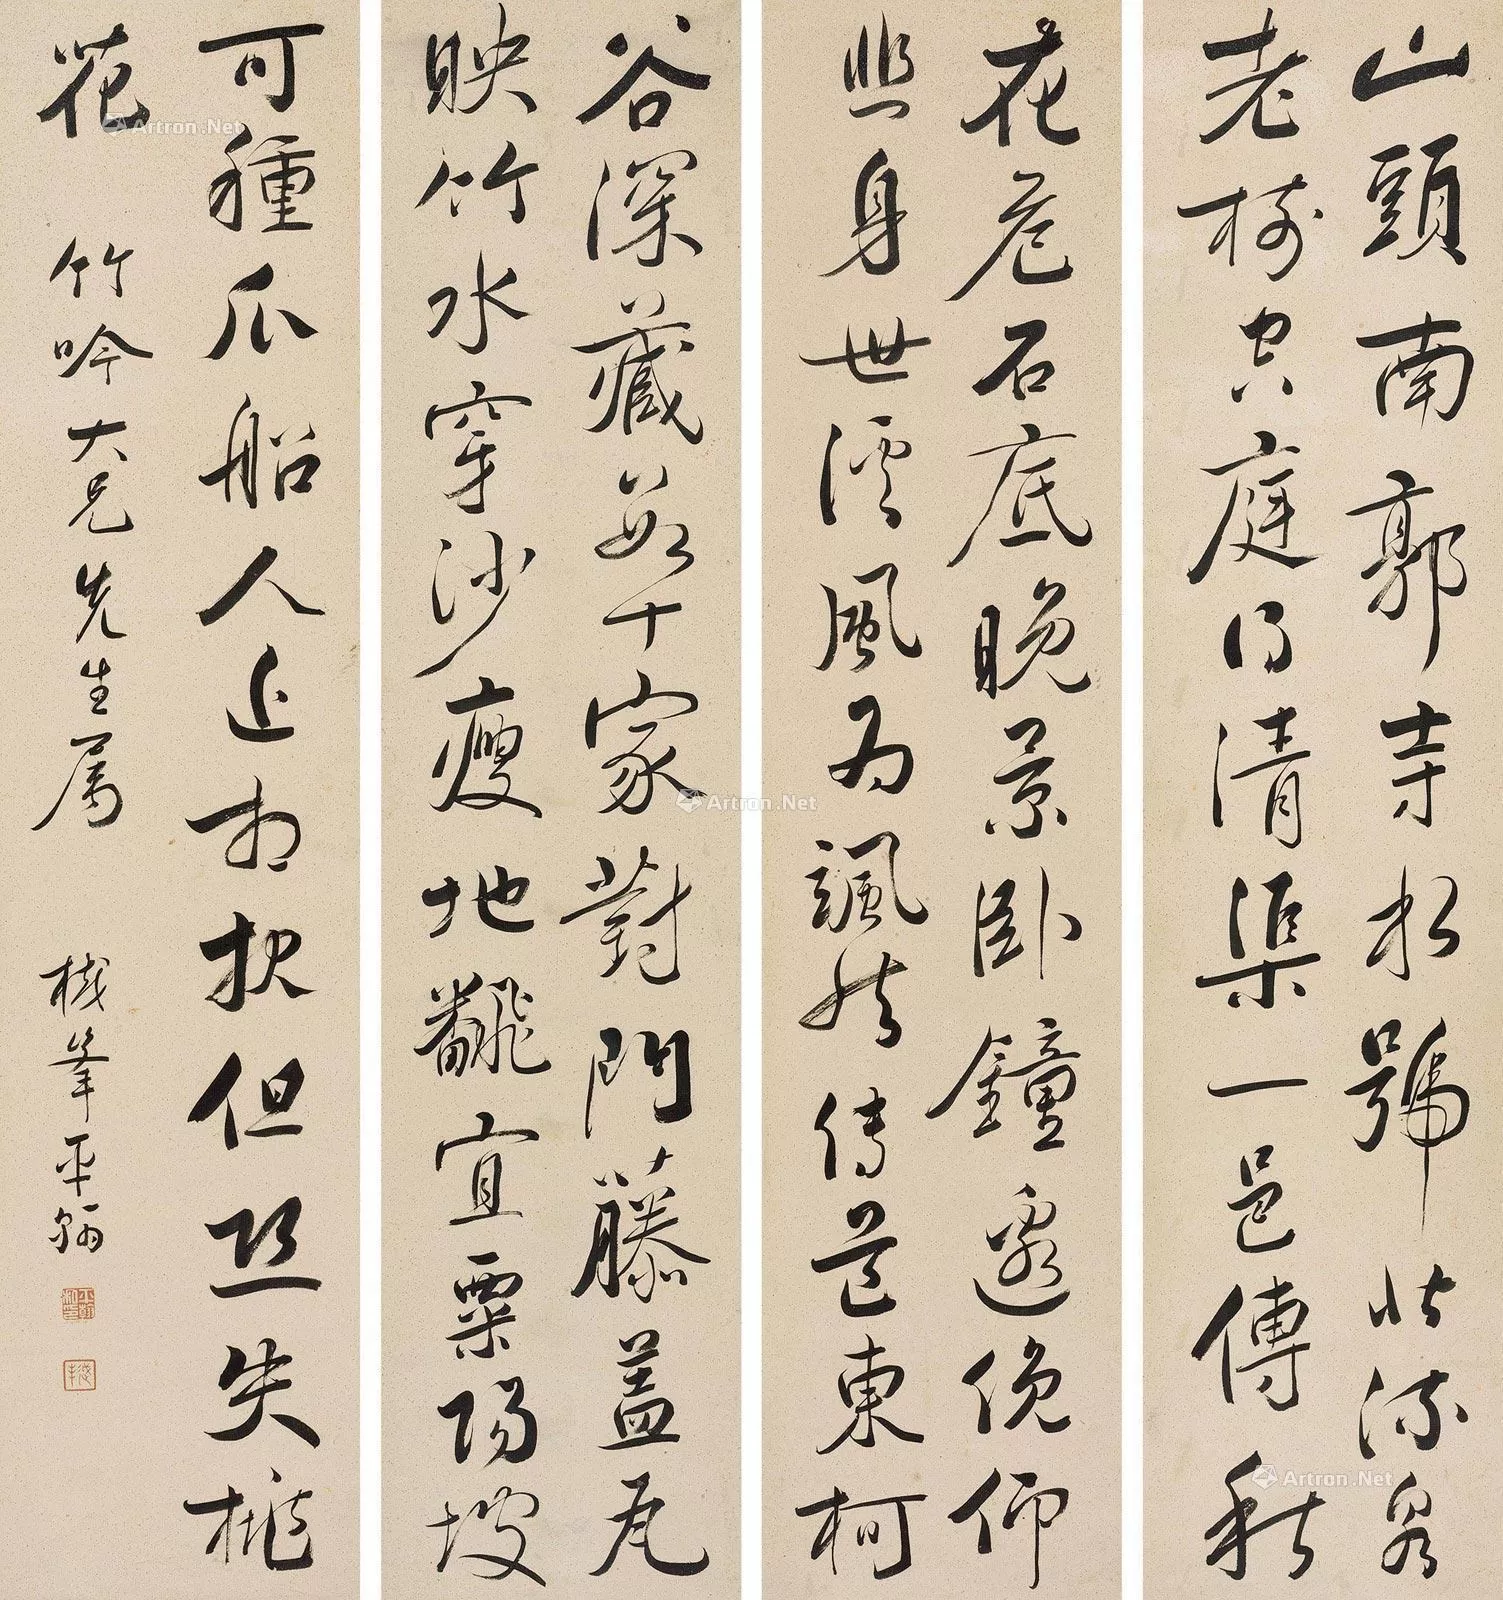 山頭南郭寺水號北流泉
老樹空庭得清渠一邑傳秋
花危石底晚景臥鐘邊俛仰
悲身世溪風為颯然傳道東柯
谷深藏數十家對門藤蓋瓦
映竹水穿沙瘦地飜宜粟陽坡
可種瓜船人近相報但恐失桃
花 竹吟大兄先生屬 樾峯平翰
Artron.Net
Artron.Net
Artron.Net